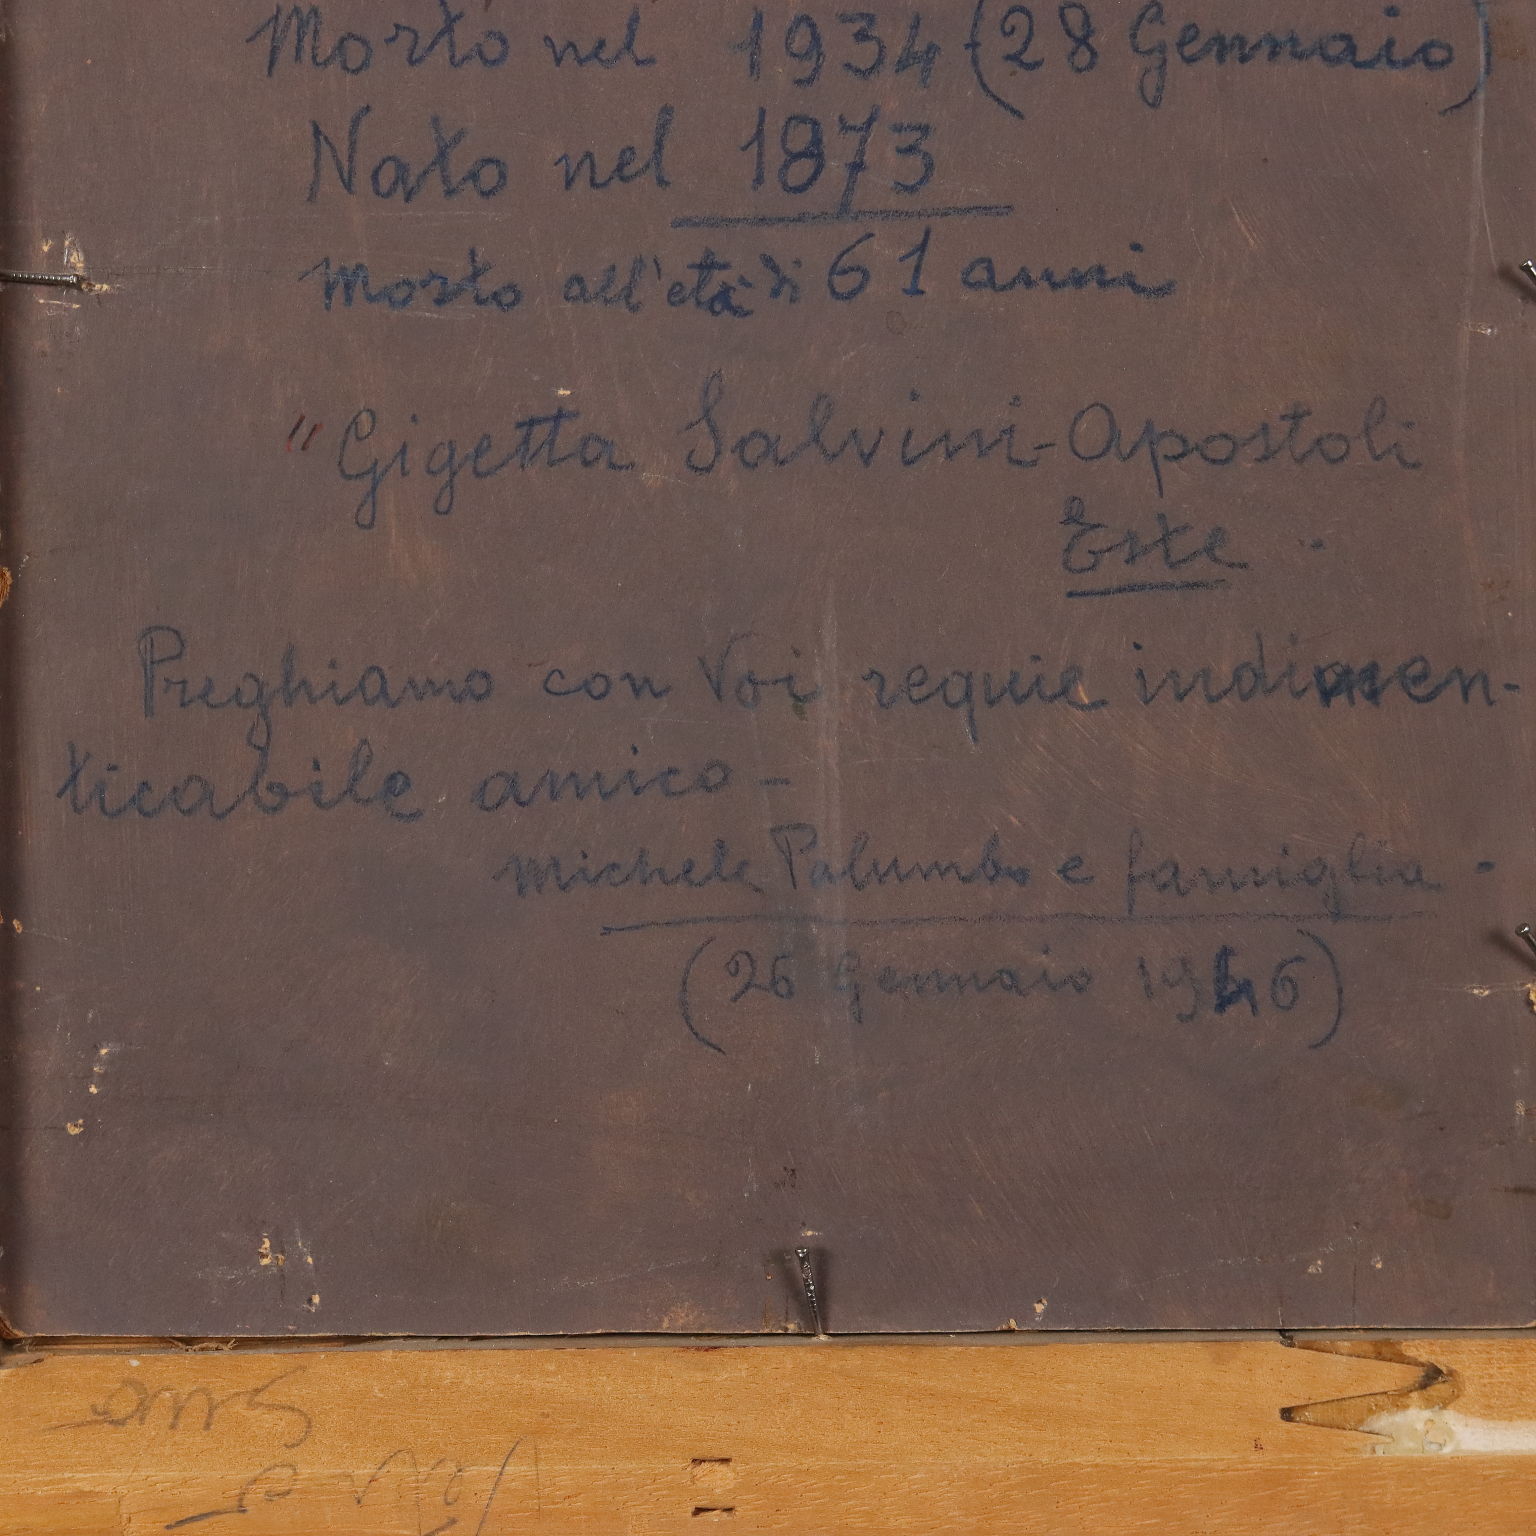 Morto nel 1934 (28 Gennaio)
Nato nel 1873
Morto all'età di 61 anni
"Gigetta Salvini-Apostoli
Este -
Preghiamo con Voi requie indimen-
ticabile amico -
Michele Palumbo e famiglia -
(26 Gennaio 1946)